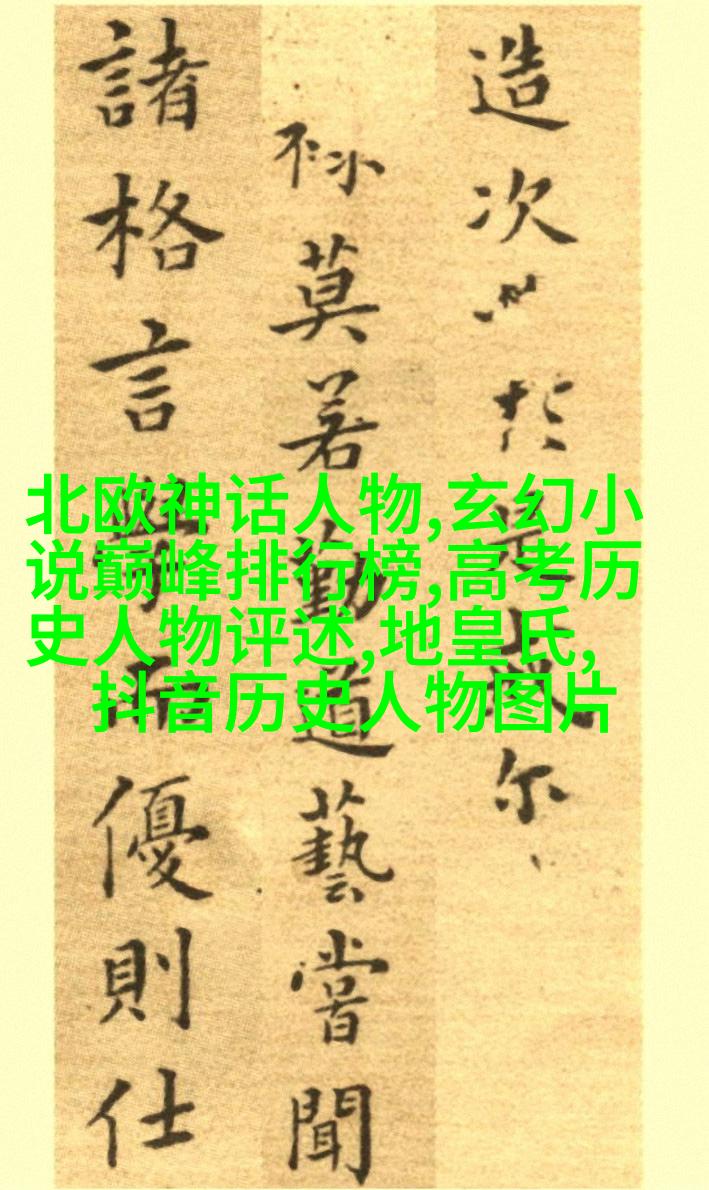 造次於是上尔
莫若勤道藝嘗聞
諸格言學而優則仕
北欧神话人物,玄幻小
说巅峰排行榜,高考历
史人物评述,地皇氏,
抖音历史人物图片